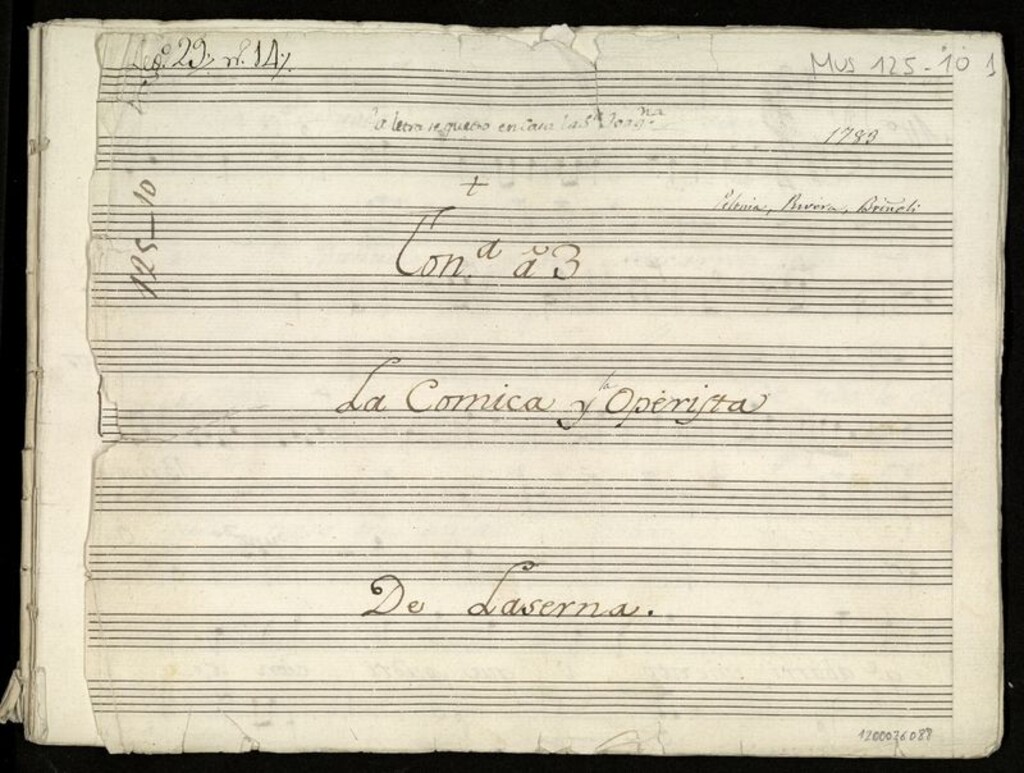 Leg.º 29, n.º 14,
MUS 125-10 1
la letra se quedo en Casa la S.ra Joaq.na
1783
+
Polonia, Rivera, Briñoli
125-10
Ton.d a 3
La Comica y la Operista
De Laserna.
1200036088